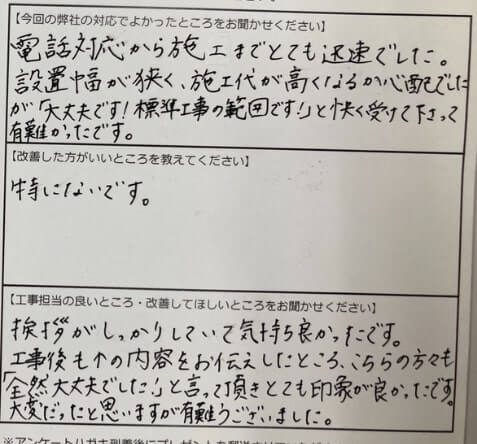 【今回の弊社の対応でよかったところをお聞かせください】
電話対応から施工までとても迅速でした。
設置幅が狭く、施工代が高くなるか心配でした
が「大丈夫です!標準工事の範囲です!」と快く受けて下さって
有難かったです。
【改善した方がいいところを教えてください】
特にないです。
【工事担当の良いところ・改善してほしいところをお聞かせください】
挨拶がしっかりしていて気持ち良かったです。
工事後も↑の内容をお伝えしたところ、こちらの方々も
「全然大丈夫でした!」と言って頂きとても印象が良かったです。
大変だったと思いますが有難うございました。
※アンケートハガキ到着後にプレゼントを郵送させ